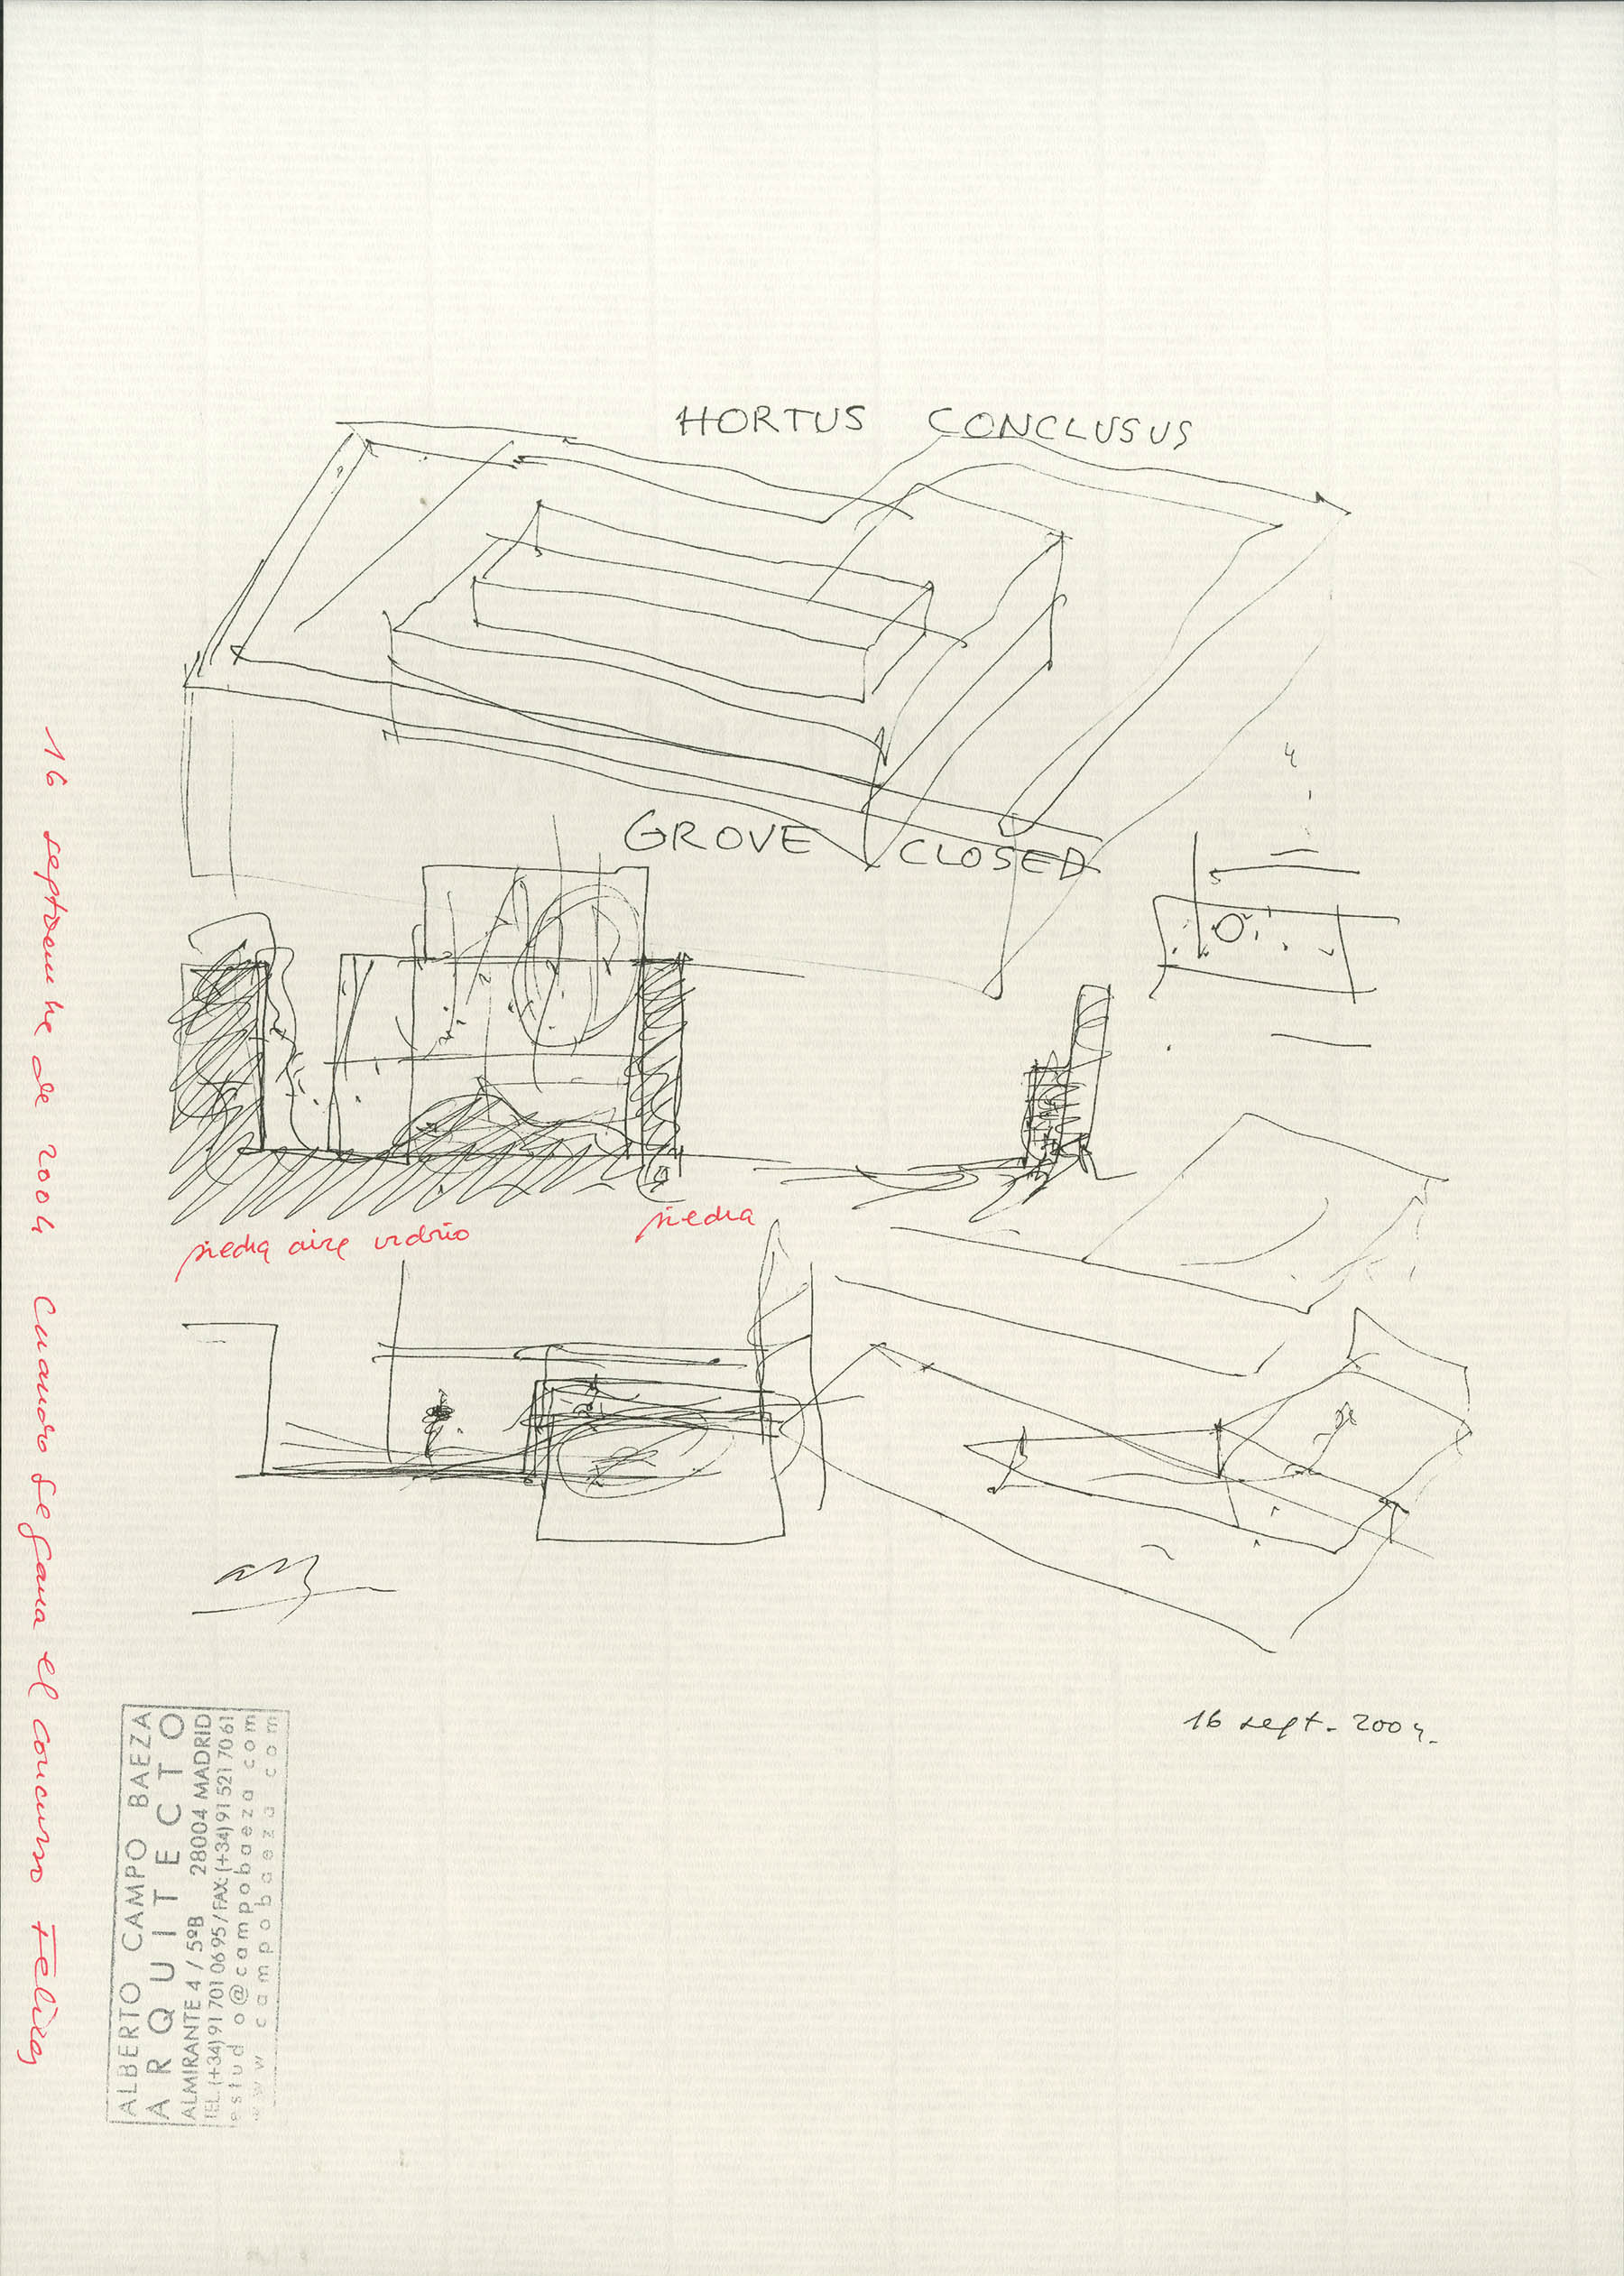 HORTUS CONCLUSUS
GROVE CLOSED
piedra aire vidrio
piedra
16 sept. 2004.
16 septiembre de 2004 Cuando se gana el concurso Feliz
ALBERTO CAMPO BAEZA
ARQUITECTO
ALMIRANTE 4 / 5ºB 28004 MADRID
TEL. (+34) 91 701 06 95 / FAX. (+34) 91 521 70 61
estudio@campobaeza com
www campobaeza com